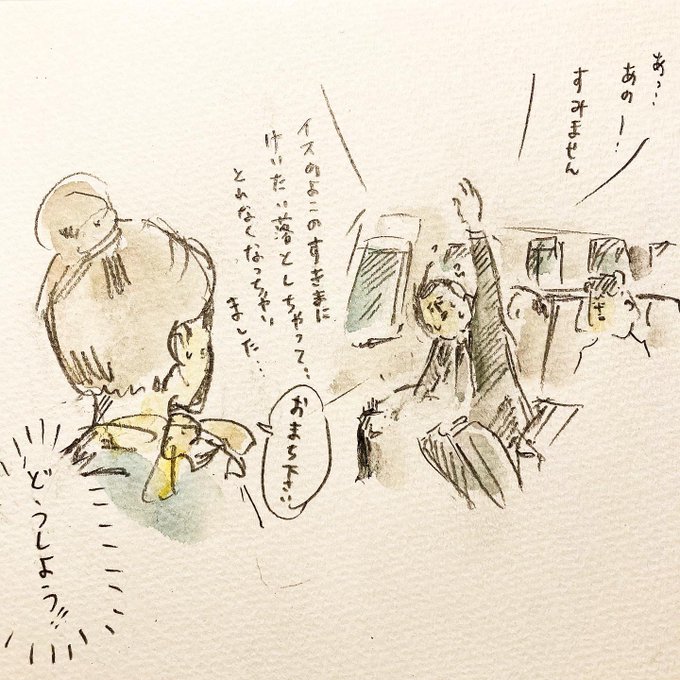 あっ…
あのー!
すみません
イスのよこのすきまに
けいたい落としちゃって…
とれなくなっちゃい
ました…
おまち下さい
どうしよう!!